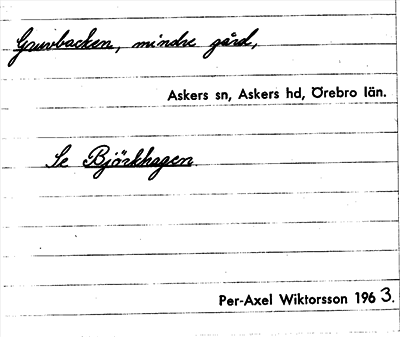 Gruvbacken, mindre gård,
Askers sn, Askers hd, Örebro län.
Se Björkhagen
Per-Axel Wiktorsson 1963.